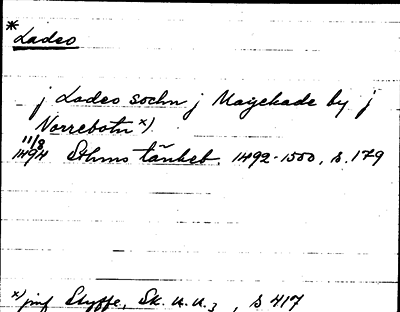 * Ladeo
j Ladeo sochn j Magekade by j
Norrebotn x)
11/8
1494 Sthms tänkeb. 1492-1500, s. 179
x) jmf Styffe, Sk. u. u. 3, s 417